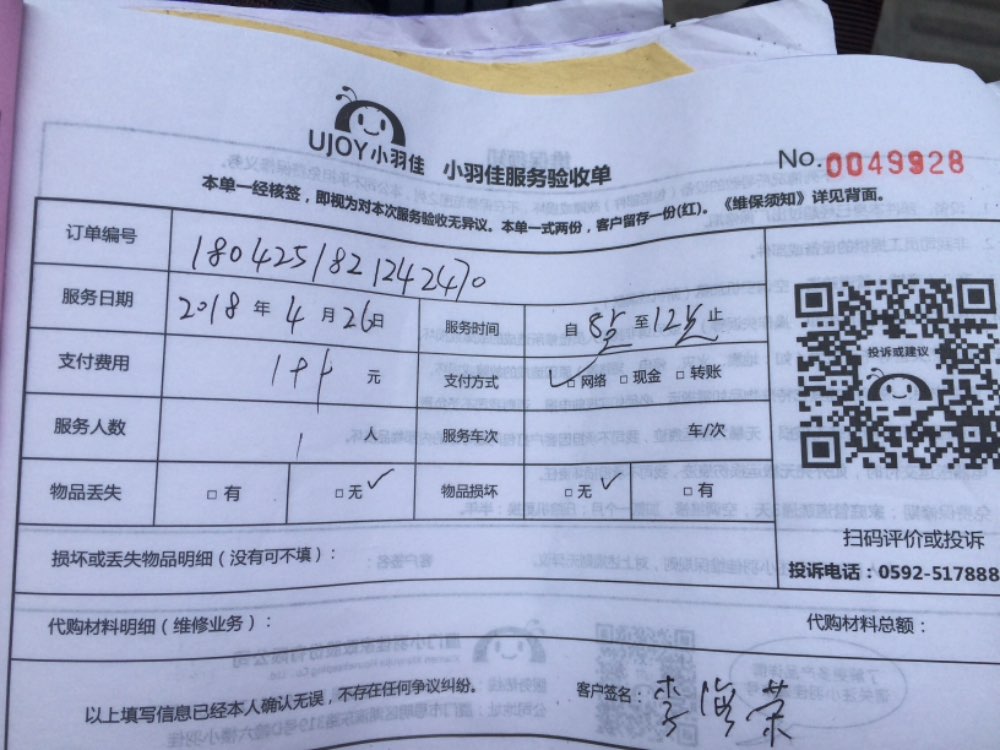 UJOY小羽佳 小羽佳服务验收单 No.0049928
本单一经核签，即视为对本次服务验收无异议。本单一式两份，客户留存一份(红)。《维保须知》详见背面。
订单编号 1804251821242470
服务日期 2018 年 4 月 26日 服务时间 自 8点 至 12点 止
支付费用 元 支付方式 ✓□网络 □现金 □转账
服务人数 1 人 服务车次 车/次
物品丢失 □有 □无✓ 物品损坏 □无✓ □有
投诉或建议
扫码评价或投诉
损坏或丢失物品明细（没有可不填）：
投诉电话：0592-517888
代购材料明细（维修业务）： 代购材料总额：
以上填写信息已经本人确认无误，不存在任何争议纠纷。 客户签名：李海荣